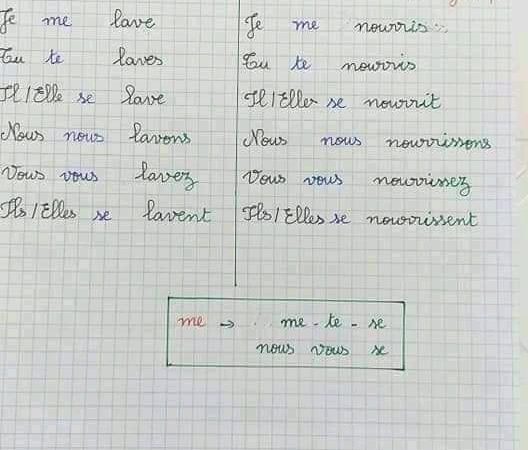 Je me lave
Tu te laves
Il/Elle se lave
Nous nous lavons
Vous vous lavez
Ils/Elles se lavent
Je me nourris
Tu te nourris
Il/Elle se nourrit
Nous nous nourrissons
Vous vous nourrissez
Ils/Elles se nourrissent
me → me - te - se
nous vous se